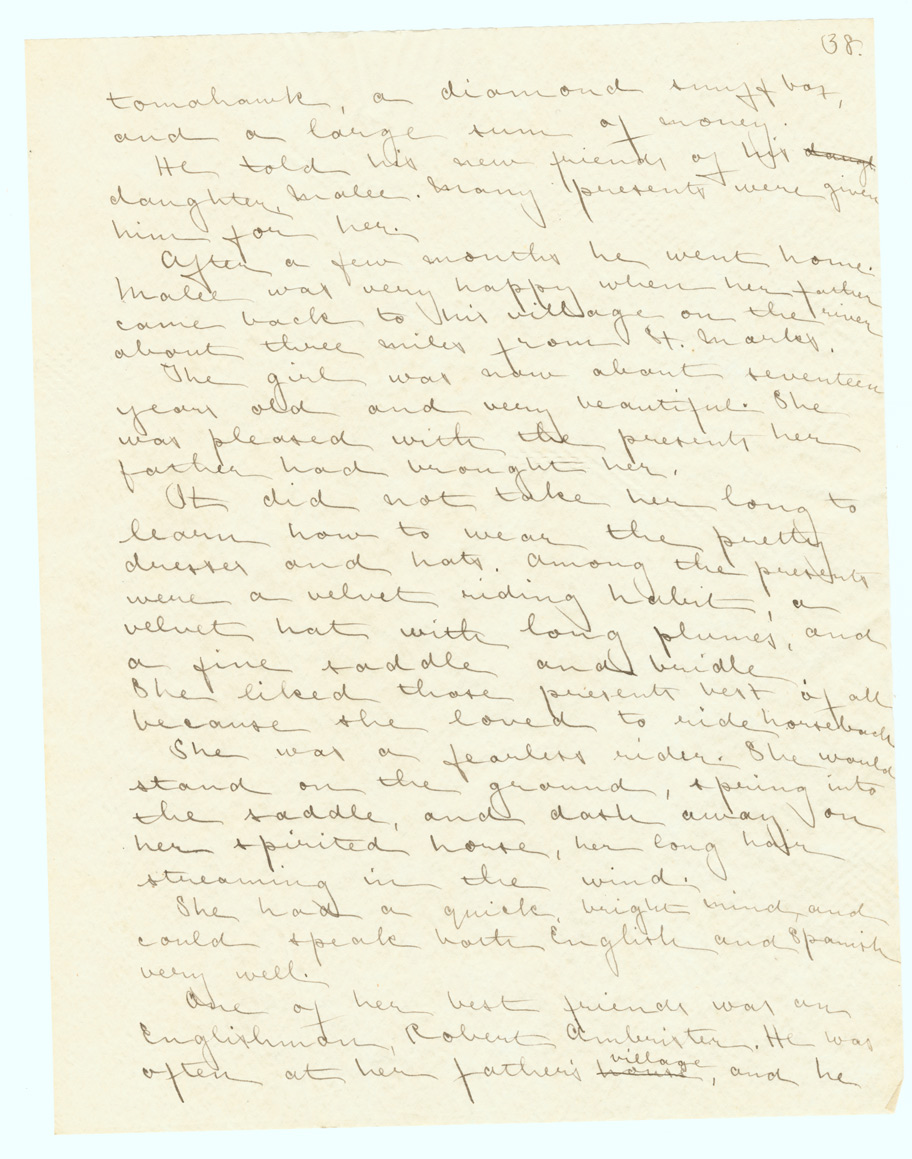 38.
tomahawk, a diamond snuff box,
and a large sum of money.
He told his new friends of his daugt
daughter, Malee. Many presents were given
him for her.
After a few months he went home.
Malee was very happy when her father
came back to his village on the river
about three miles from St. Marks.
The girl was now about seventeen
years old and very beautiful. She
was pleased with the presents her
father had brought her.
It did not take her long to
learn how to wear the pretty
dresses and hats. Among the presents
were a velvet riding habit, a
velvet hat with long plumes, and
a fine saddle and bridle
She liked those presents best of all
because she loved to ride horseback
She was a fearless rider. She would
stand on the ground, spring into
the saddle, and dash away on
her spirited horse, her long hair
streaming in the wind.
She had a quick, bright mind, and
could speak both English and Spanish
very well.
One of her best friends was an
Englishman, Robert Ambrister. He was
often at her father's house village, and he